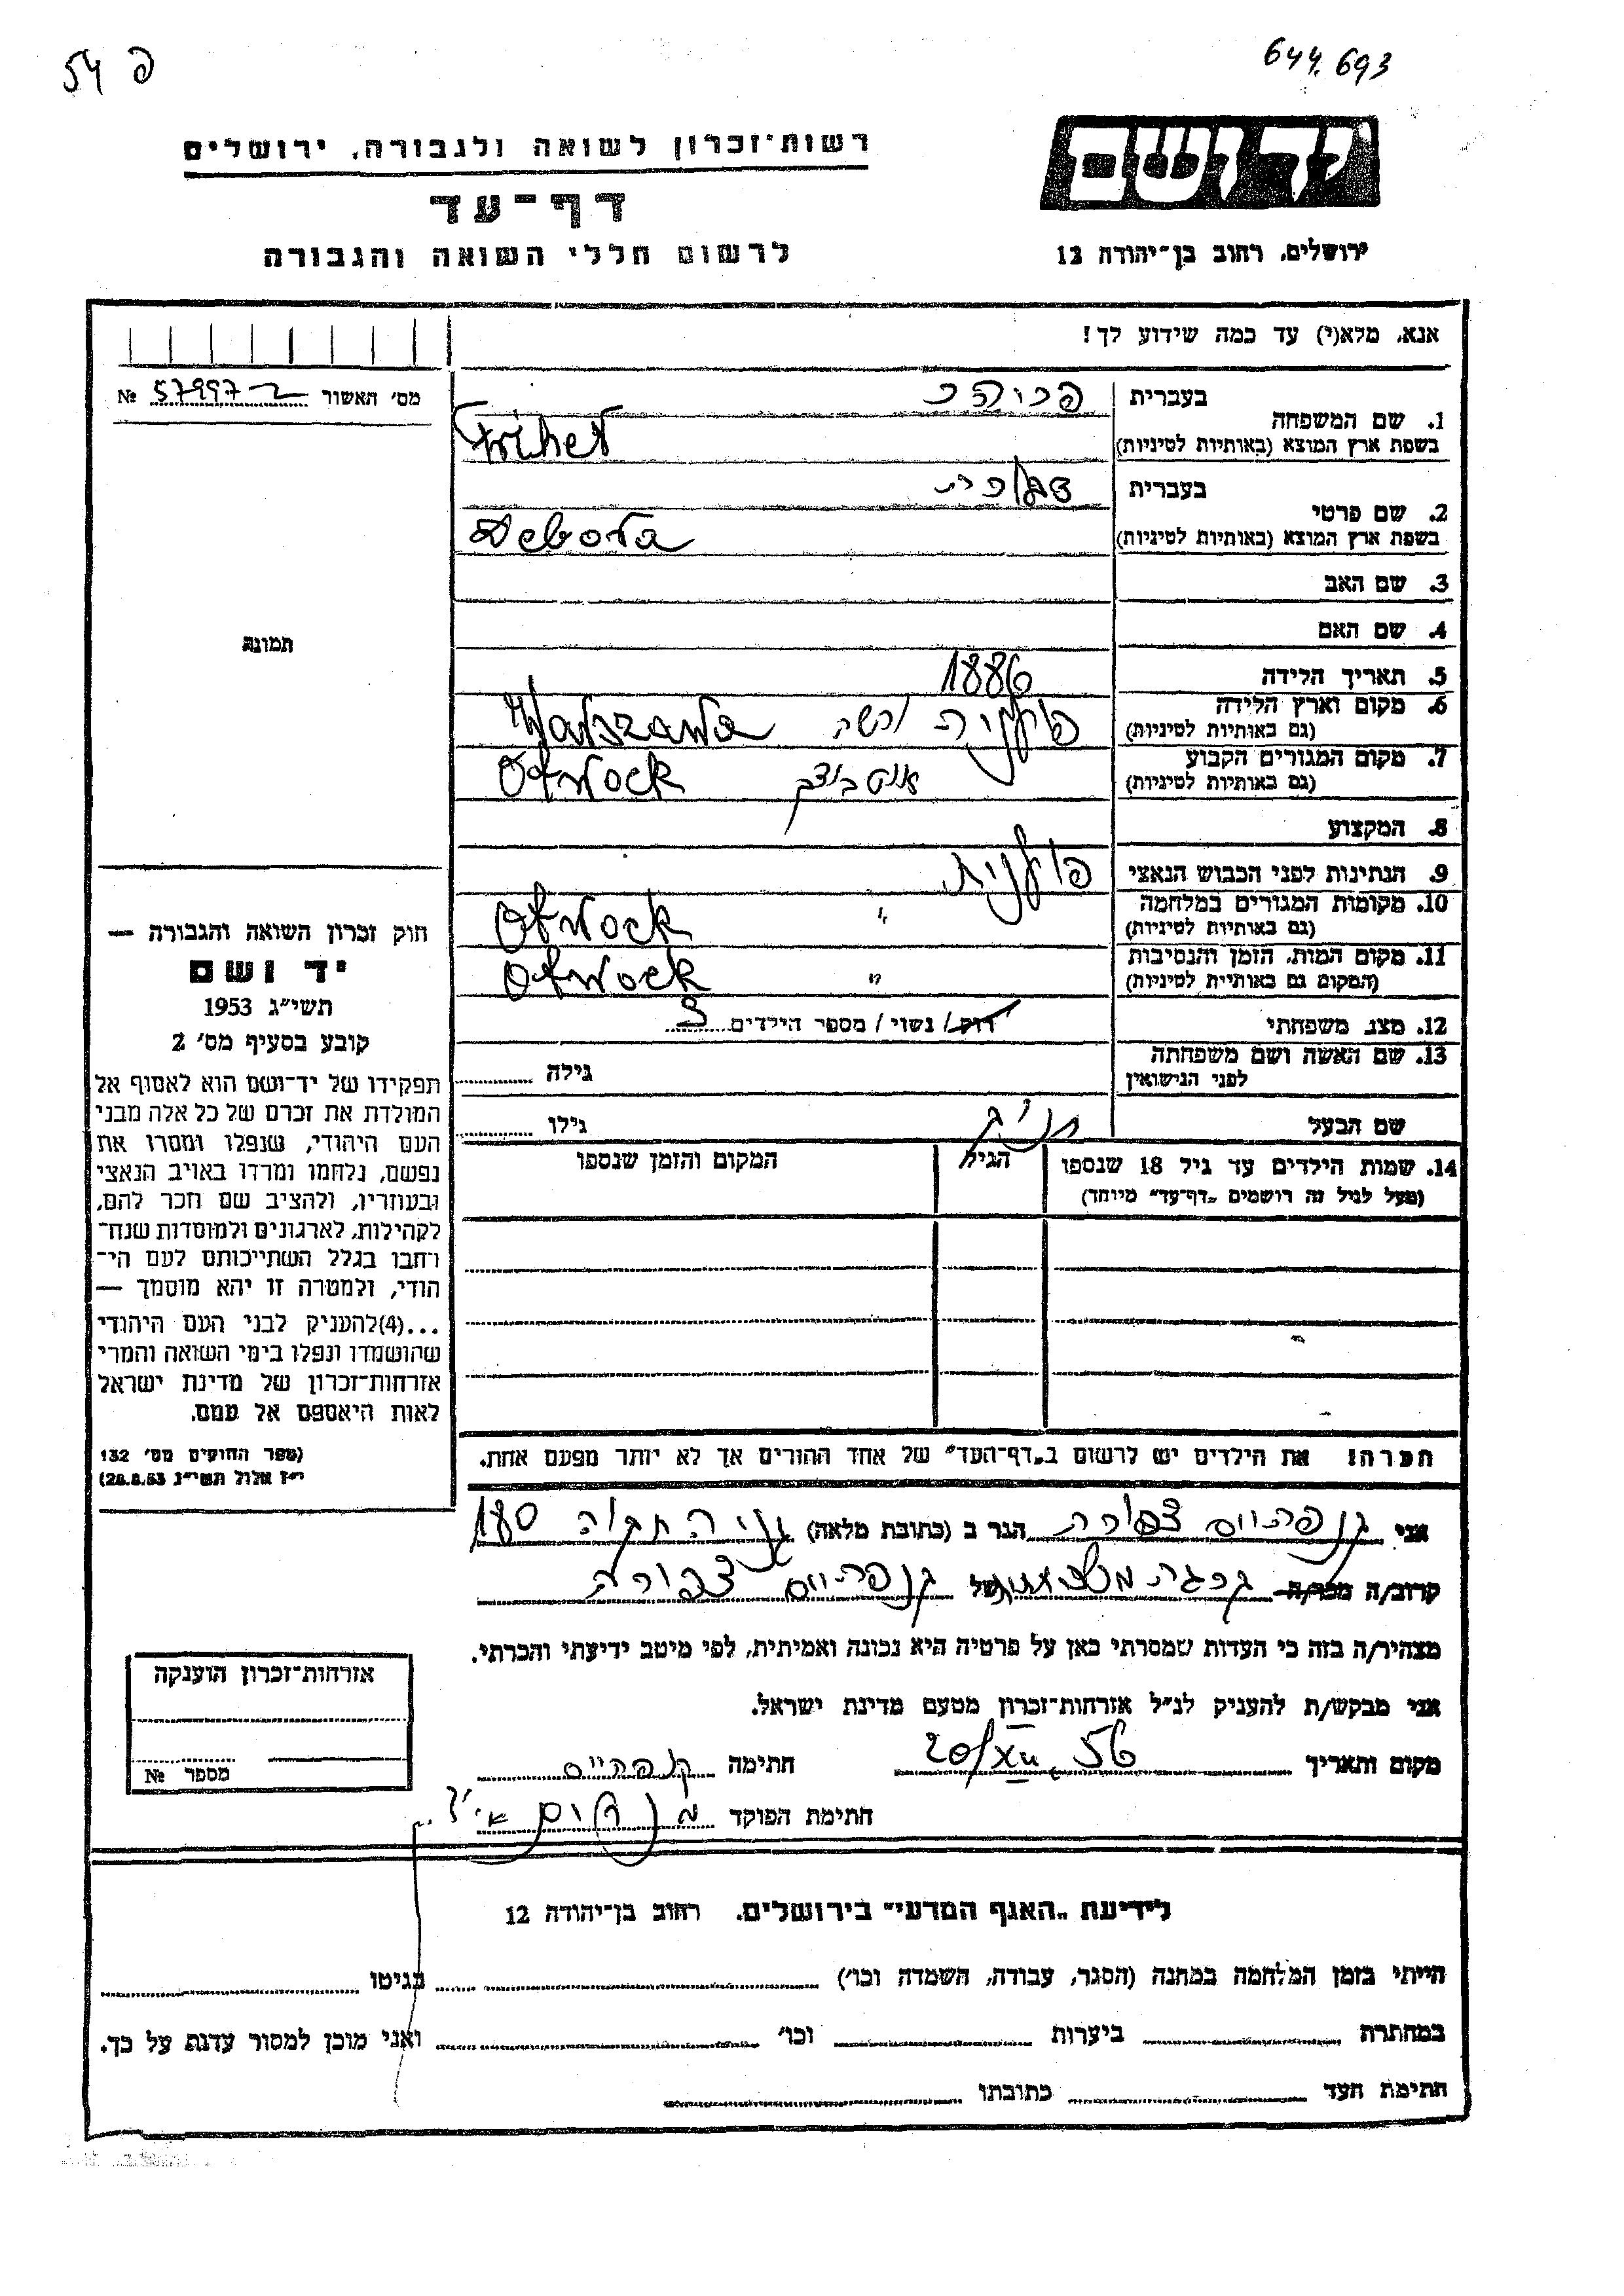 פ 54
644.693
רשות־זכרון לשואה ולגבורה, ירושלים
דף־עד
לרשום חללי השואה והגבורה
יד ושם
ירושלים, רחוב בן־יהודה 12
אנא, מלא(י) עד כמה שידוע לך!
מס' האשור 57997 №
1. שם המשפחה
בעברית
בשפת ארץ המוצא (באותיות לטיניות)
2. שם פרטי
בעברית
בשפת ארץ המוצא (באותיות לטיניות) Debora
3. שם האב
4. שם האם
5. תאריך הלידה 1886
6. מקום וארץ הלידה
(גם באותיות לטיניות) פולנית ורשה Warszawa
7. מקום המגורים הקבוע
(גם באותיות לטיניות) אוטבוצק Otwock
8. המקצוע
9. הנתינות לפני הכבוש הנאצי פולנית
10. מקומות המגורים במלחמה
(גם באותיות לטיניות) " Otwock
11. מקום המות, הזמן והנסיבות
(המקום גם באותיות לטיניות) " Otwock
12. מצב משפחתי רווק / נשוי / מספר הילדים 3
13. שם האשה ושם משפחתה
לפני הנישואין גילה
שם הבעל גילו
14. שמות הילדים עד גיל 18 שנספו
(מעל לגיל זה רושמים „דף־עד" מיוחד)
הגיל
המקום והזמן שנספו
הערה! את הילדים יש לרשום ב„דף־העד" של אחד ההורים אך לא יותר מפעם אחת.
תמונה
חוק זכרון השואה והגבורה —
יד ושם
תשי"ג 1953
קובע בסעיף מס' 2
תפקידו של יד־ושם הוא לאסוף אל
המולדת את זכרם של כל אלה מבני
העם היהודי, שנפלו ומסרו את
נפשם, נלחמו ומרדו באויב הנאצי
ובעוזריו, ולהציב שם וזכר להם,
לקהילות, לארגונים ולמוסדות שנח־
רבו בגלל השתייכותם לעם הי־
הודי, ולמטרה זו יהא מוסמך —
...(4)להעניק לבני העם היהודי
שהושמדו ונפלו בימי השואה והמרי
אזרחות־זכרון של מדינת ישראל
לאות היאספם אל עמם.
(ספר החוקים מס' 132
י"ז אלול תשי"ג 28.8.53)
אני צפורה הגר ב (כתובת מלאה) התקוה 180
קרוב/ה מכר/ה של צפורה
מצהיר/ה בזה כי העדות שמסרתי כאן על פרטיה היא נכונה ואמיתית, לפי מיטב ידיעתי והכרתי.
אני מבקש/ת להעניק לנ"ל אזרחות־זכרון מטעם מדינת ישראל.
מקום ותאריך 20/XII 56 חתימה
חתימת הפוקד
אזרחות־זכרון הוענקה
מספר №
לידיעת „האגף המדעי" בירושלים, רחוב בן־יהודה 12
הייתי בזמן המלחמה במחנה (הסגר, עבודה, השמדה וכו') בגיטו
במחתרת ביערות וכו' ואני מוכן למסור עדות על כך.
חתימת העד כתובתו